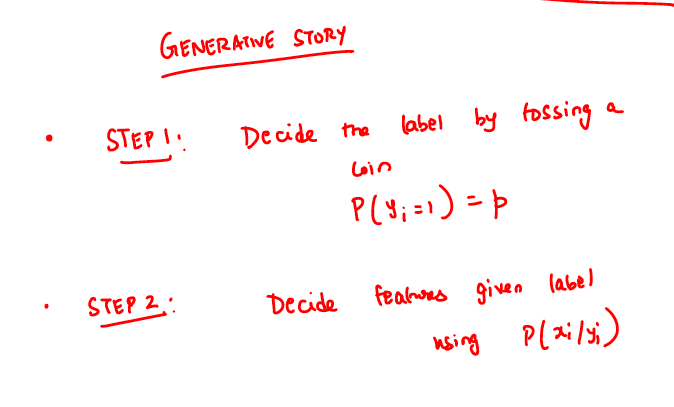 GENERATIVE STORY
• STEP 1: Decide the label by tossing a
coin
P(yi=1) = p
• STEP 2: Decide features given label
using P(xi/yi)